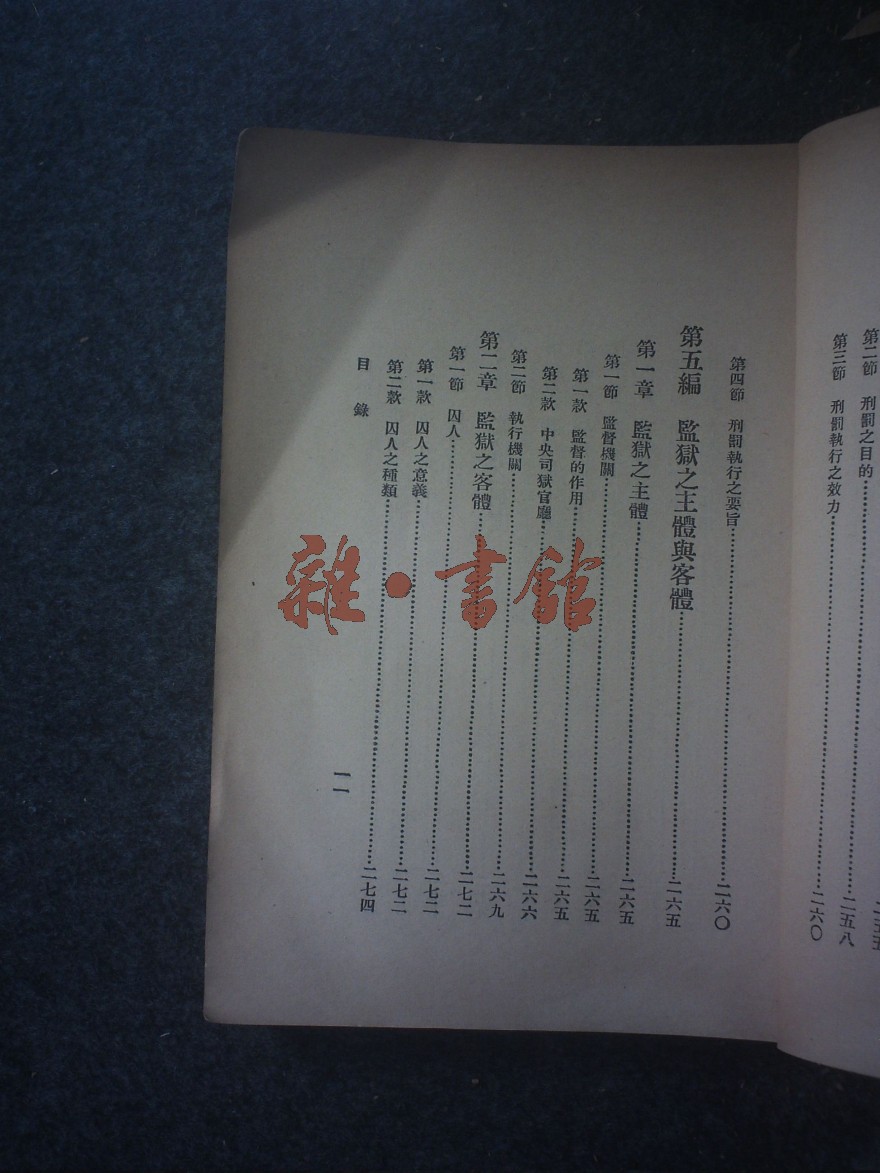 第二節　刑罰之目的……二五八
第三節　刑罰執行之效力……二六〇
第四節　刑罰執行之要旨……二六〇
第五編　監獄之主體與客體……二六五
第一章　監獄之主體……二六五
第一節　監督機關……二六五
第一款　監督的作用……二六五
第二款　中央司獄官廳……二六六
第二節　執行機關……二六九
第二章　監獄之客體……二七二
第一節　囚人……二七二
第一款　囚人之意義……二七二
第二款　囚人之種類……二七四
目錄
一一
雜·書館